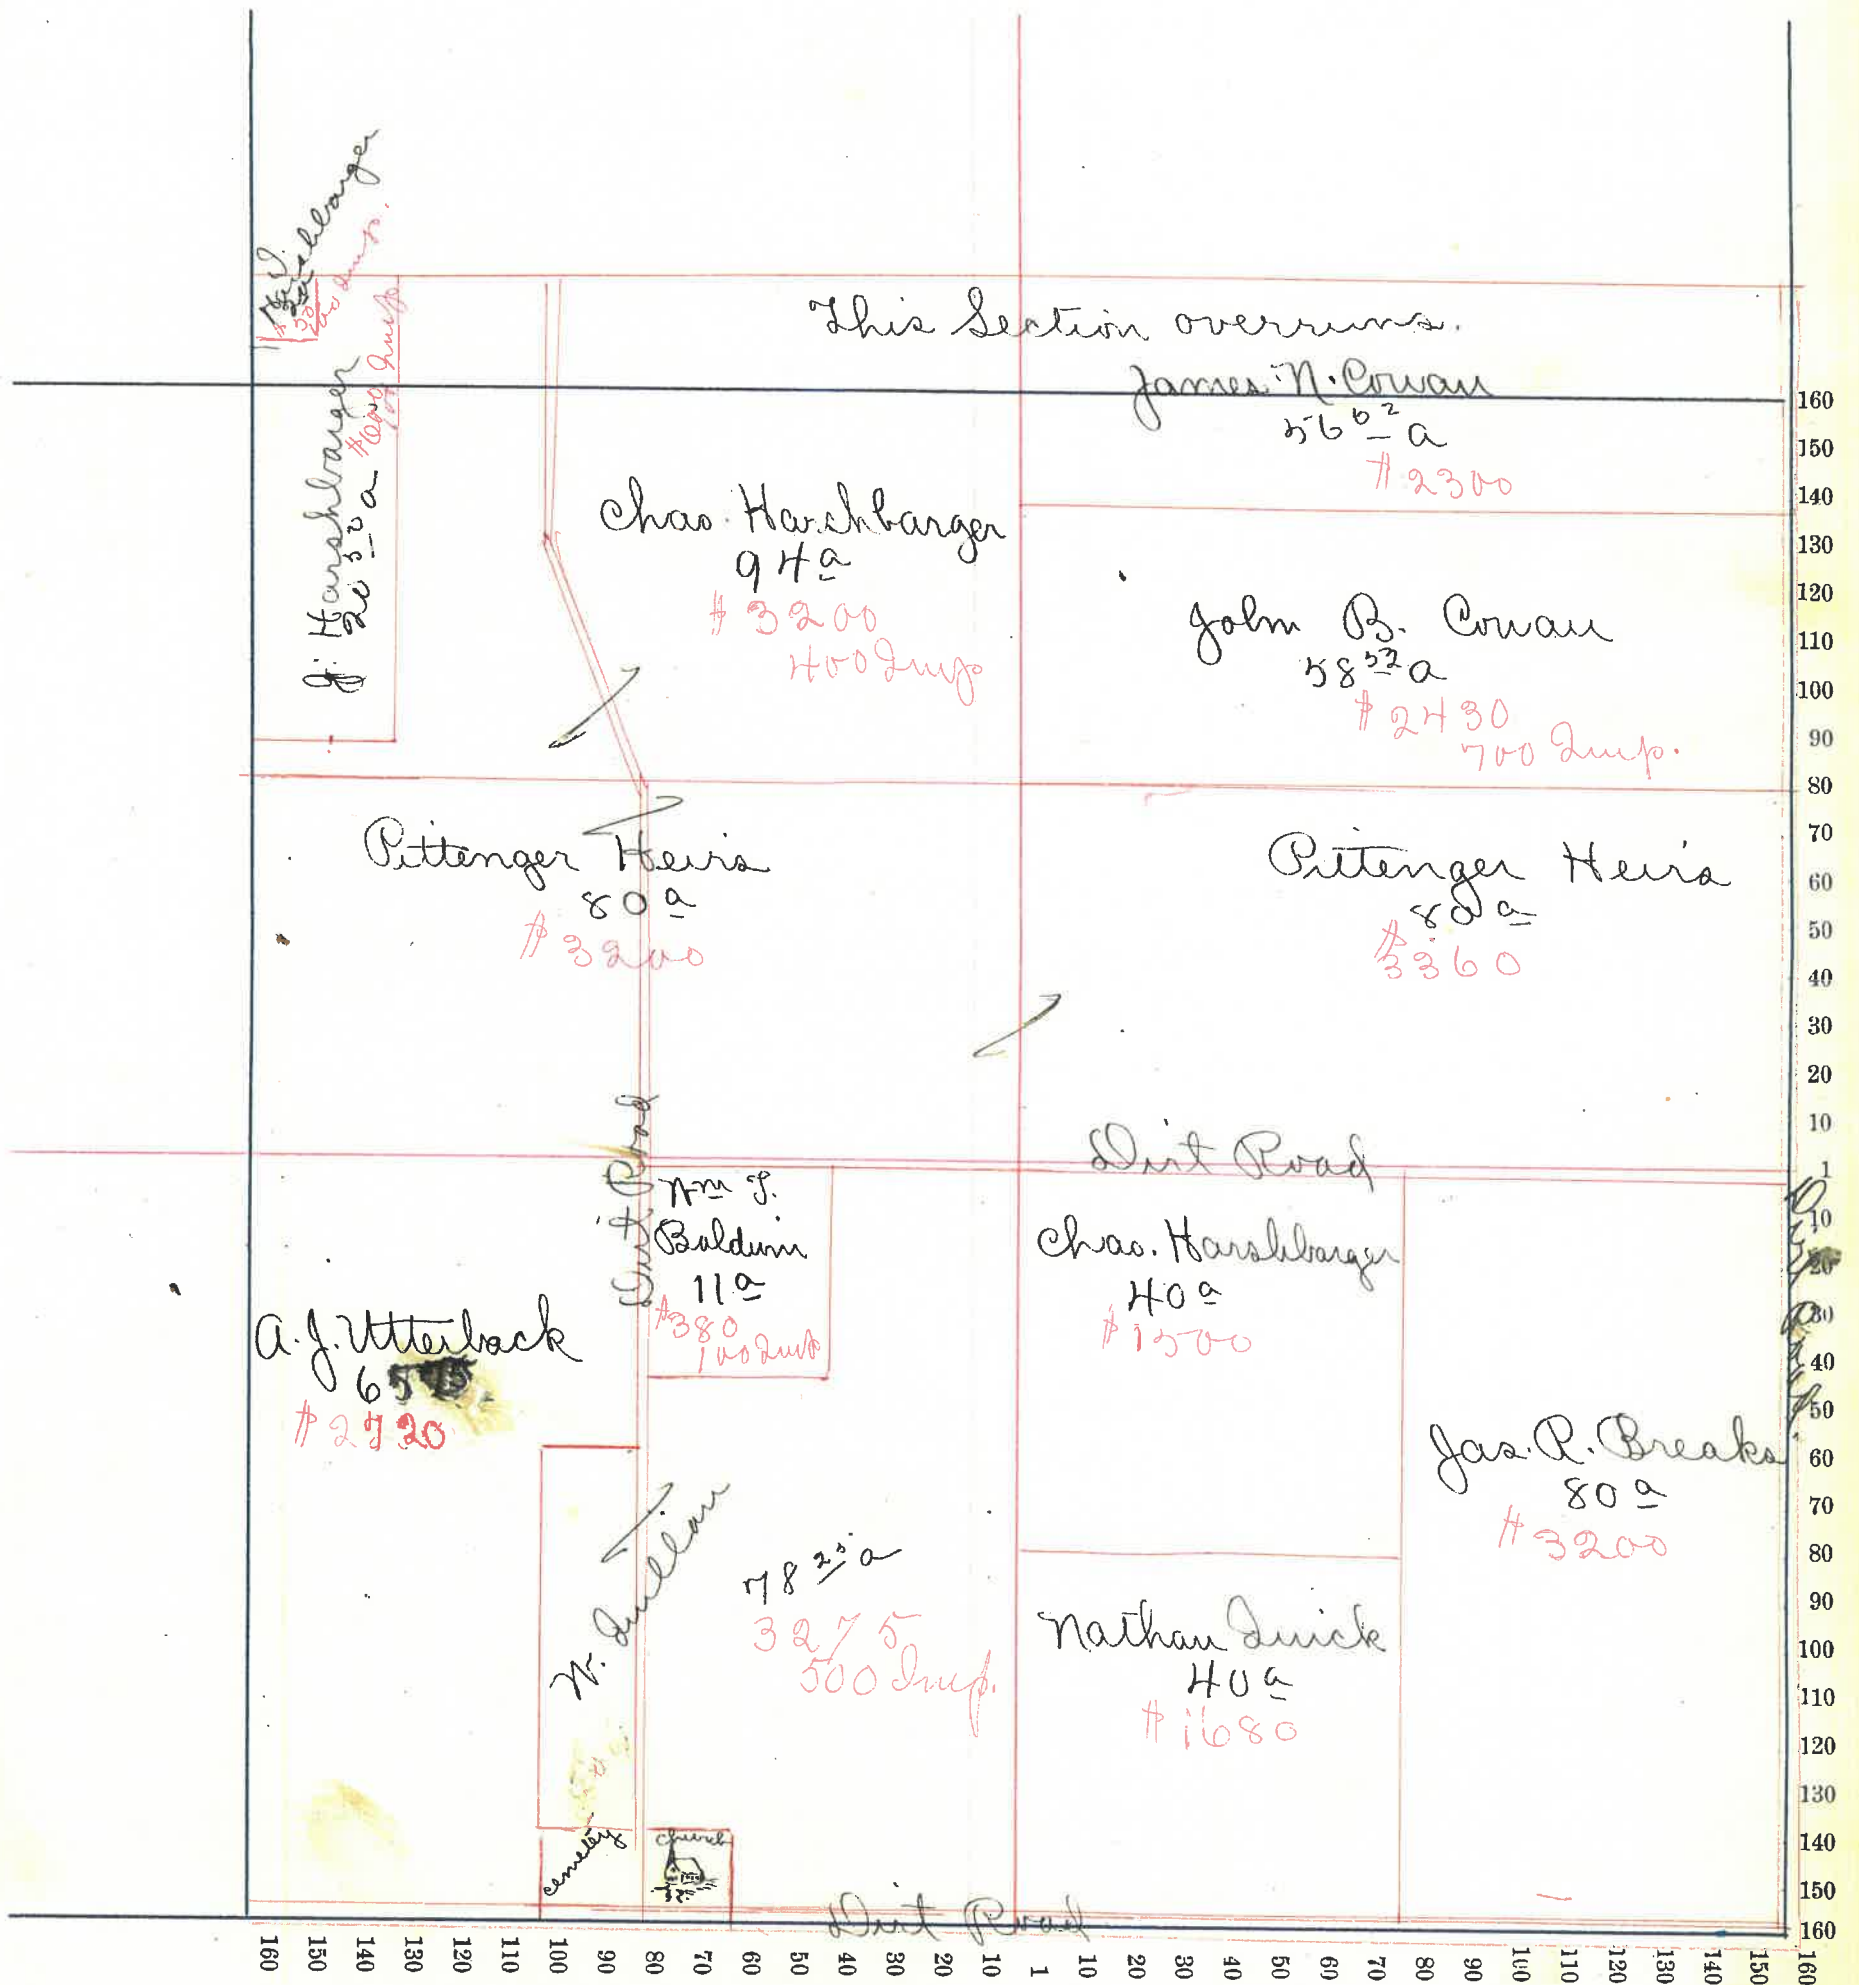 Harshbarger
100 Imp.
J. Harshbarger
20 50 a
$600 Imp
This Section overruns.
James N. Cowan
56 62 a
$2300
Chas. Harshbarger
94 a
$3200
400 Imp
John B. Cowan
58 52 a
$2430
700 Imp.
Pittenger Heirs
80 a
$3200
Pittenger Heirs
80 a
$3360
Dirt Road
Dirt Road
Wm T.
Baldwin
11 a
$380
100 Imp
Chas. Harshbarger
40 a
$1500
A. J. Utterback
65
$2720
Jas. R. Breaks
80 a
$3200
W. Quillan
78 25 a
3275
500 Imp.
Nathan Quick
40 a
$1680
cemetery
church
Dirt Road
160
150
140
130
120
110
100
90
80
70
60
50
40
30
20
10
1
10
20
30
40
50
60
70
80
90
100
110
120
130
140
150
160
160 150 140 130 120 110 100 90 80 70 60 50 40 30 20 10 1 10 20 30 40 50 60 70 80 90 100 110 120 130 140 150 160